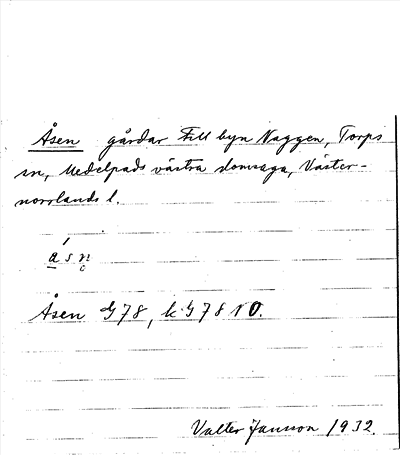 Åsen gårdar till byn Naggen, Torps
sn, Medelpads västra domsaga, Väster-
norrlands l.
á s n̥
Åsen G78, k G 78 10.
Valter Jansson 1932.